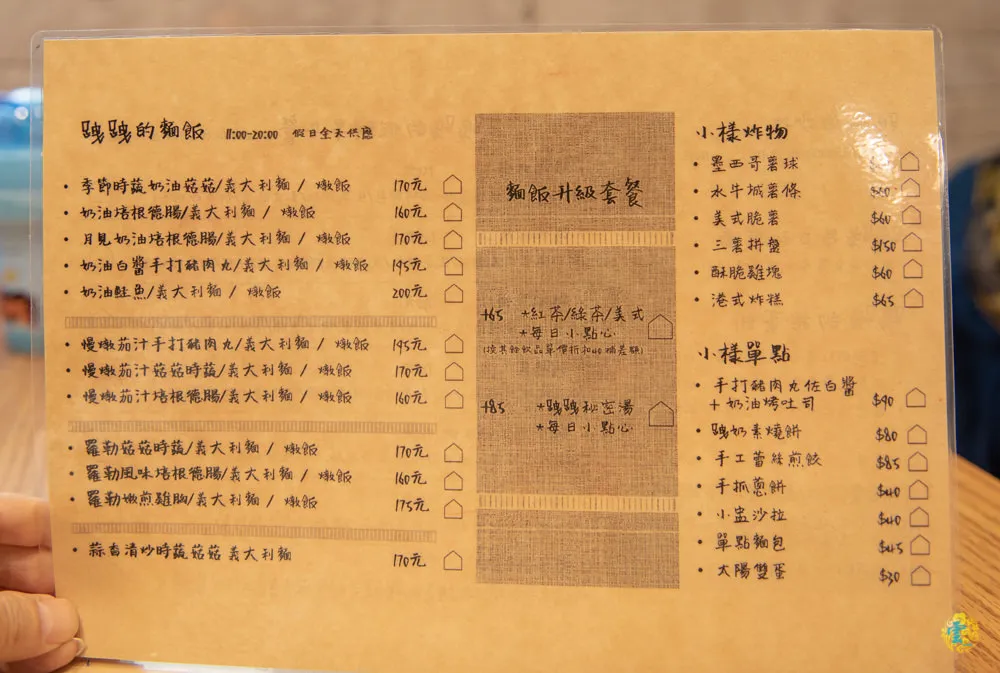 的麵飯 11:00-20:00 假日全天供應
• 季節時蔬奶油菇菇/義大利麵 / 燉飯 170元
• 奶油培根德腸/義大利麵 / 燉飯 160元
• 月見奶油培根德腸/義大利麵 / 燉飯 170元
• 奶油白醬手打豬肉丸/義大利麵 / 燉飯 195元
• 奶油鮭魚/義大利麵 / 燉飯 200元
• 慢燉茄汁手打豬肉丸/義大利麵 / 燉飯 195元
• 慢燉茄汁菇菇時蔬/義大利麵 / 燉飯 170元
• 慢燉茄汁培根德腸/義大利麵 / 燉飯 160元
• 羅勒菇菇時蔬/義大利麵 / 燉飯 170元
• 羅勒風味培根德腸/義大利麵 / 燉飯 160元
• 羅勒嫩煎雞胸/義大利麵 / 燉飯 175元
• 蒜香清炒時蔬菇菇義大利麵 170元
麵飯升級套餐
+65 *紅茶/綠茶/美式
*每日小點心
(按其餘飲品單價折扣40補差額)
+85 秘密湯
*每日小點心
小樣炸物
• 墨西哥薯球
• 水牛城薯條 $60
• 美式脆薯 $60
• 三薯拼盤 $150
• 酥脆雞塊 $60
• 港式炸糕 $65
小樣單點
• 手打豬肉丸佐白醬
+ 奶油烤吐司 $90
• 奶素燒餅 $80
• 手工蕾絲煎餃 $85
• 手抓蔥餅 $40
• 小盅沙拉 $40
• 單點麵包 $45
• 太陽雙蛋 $30
雲